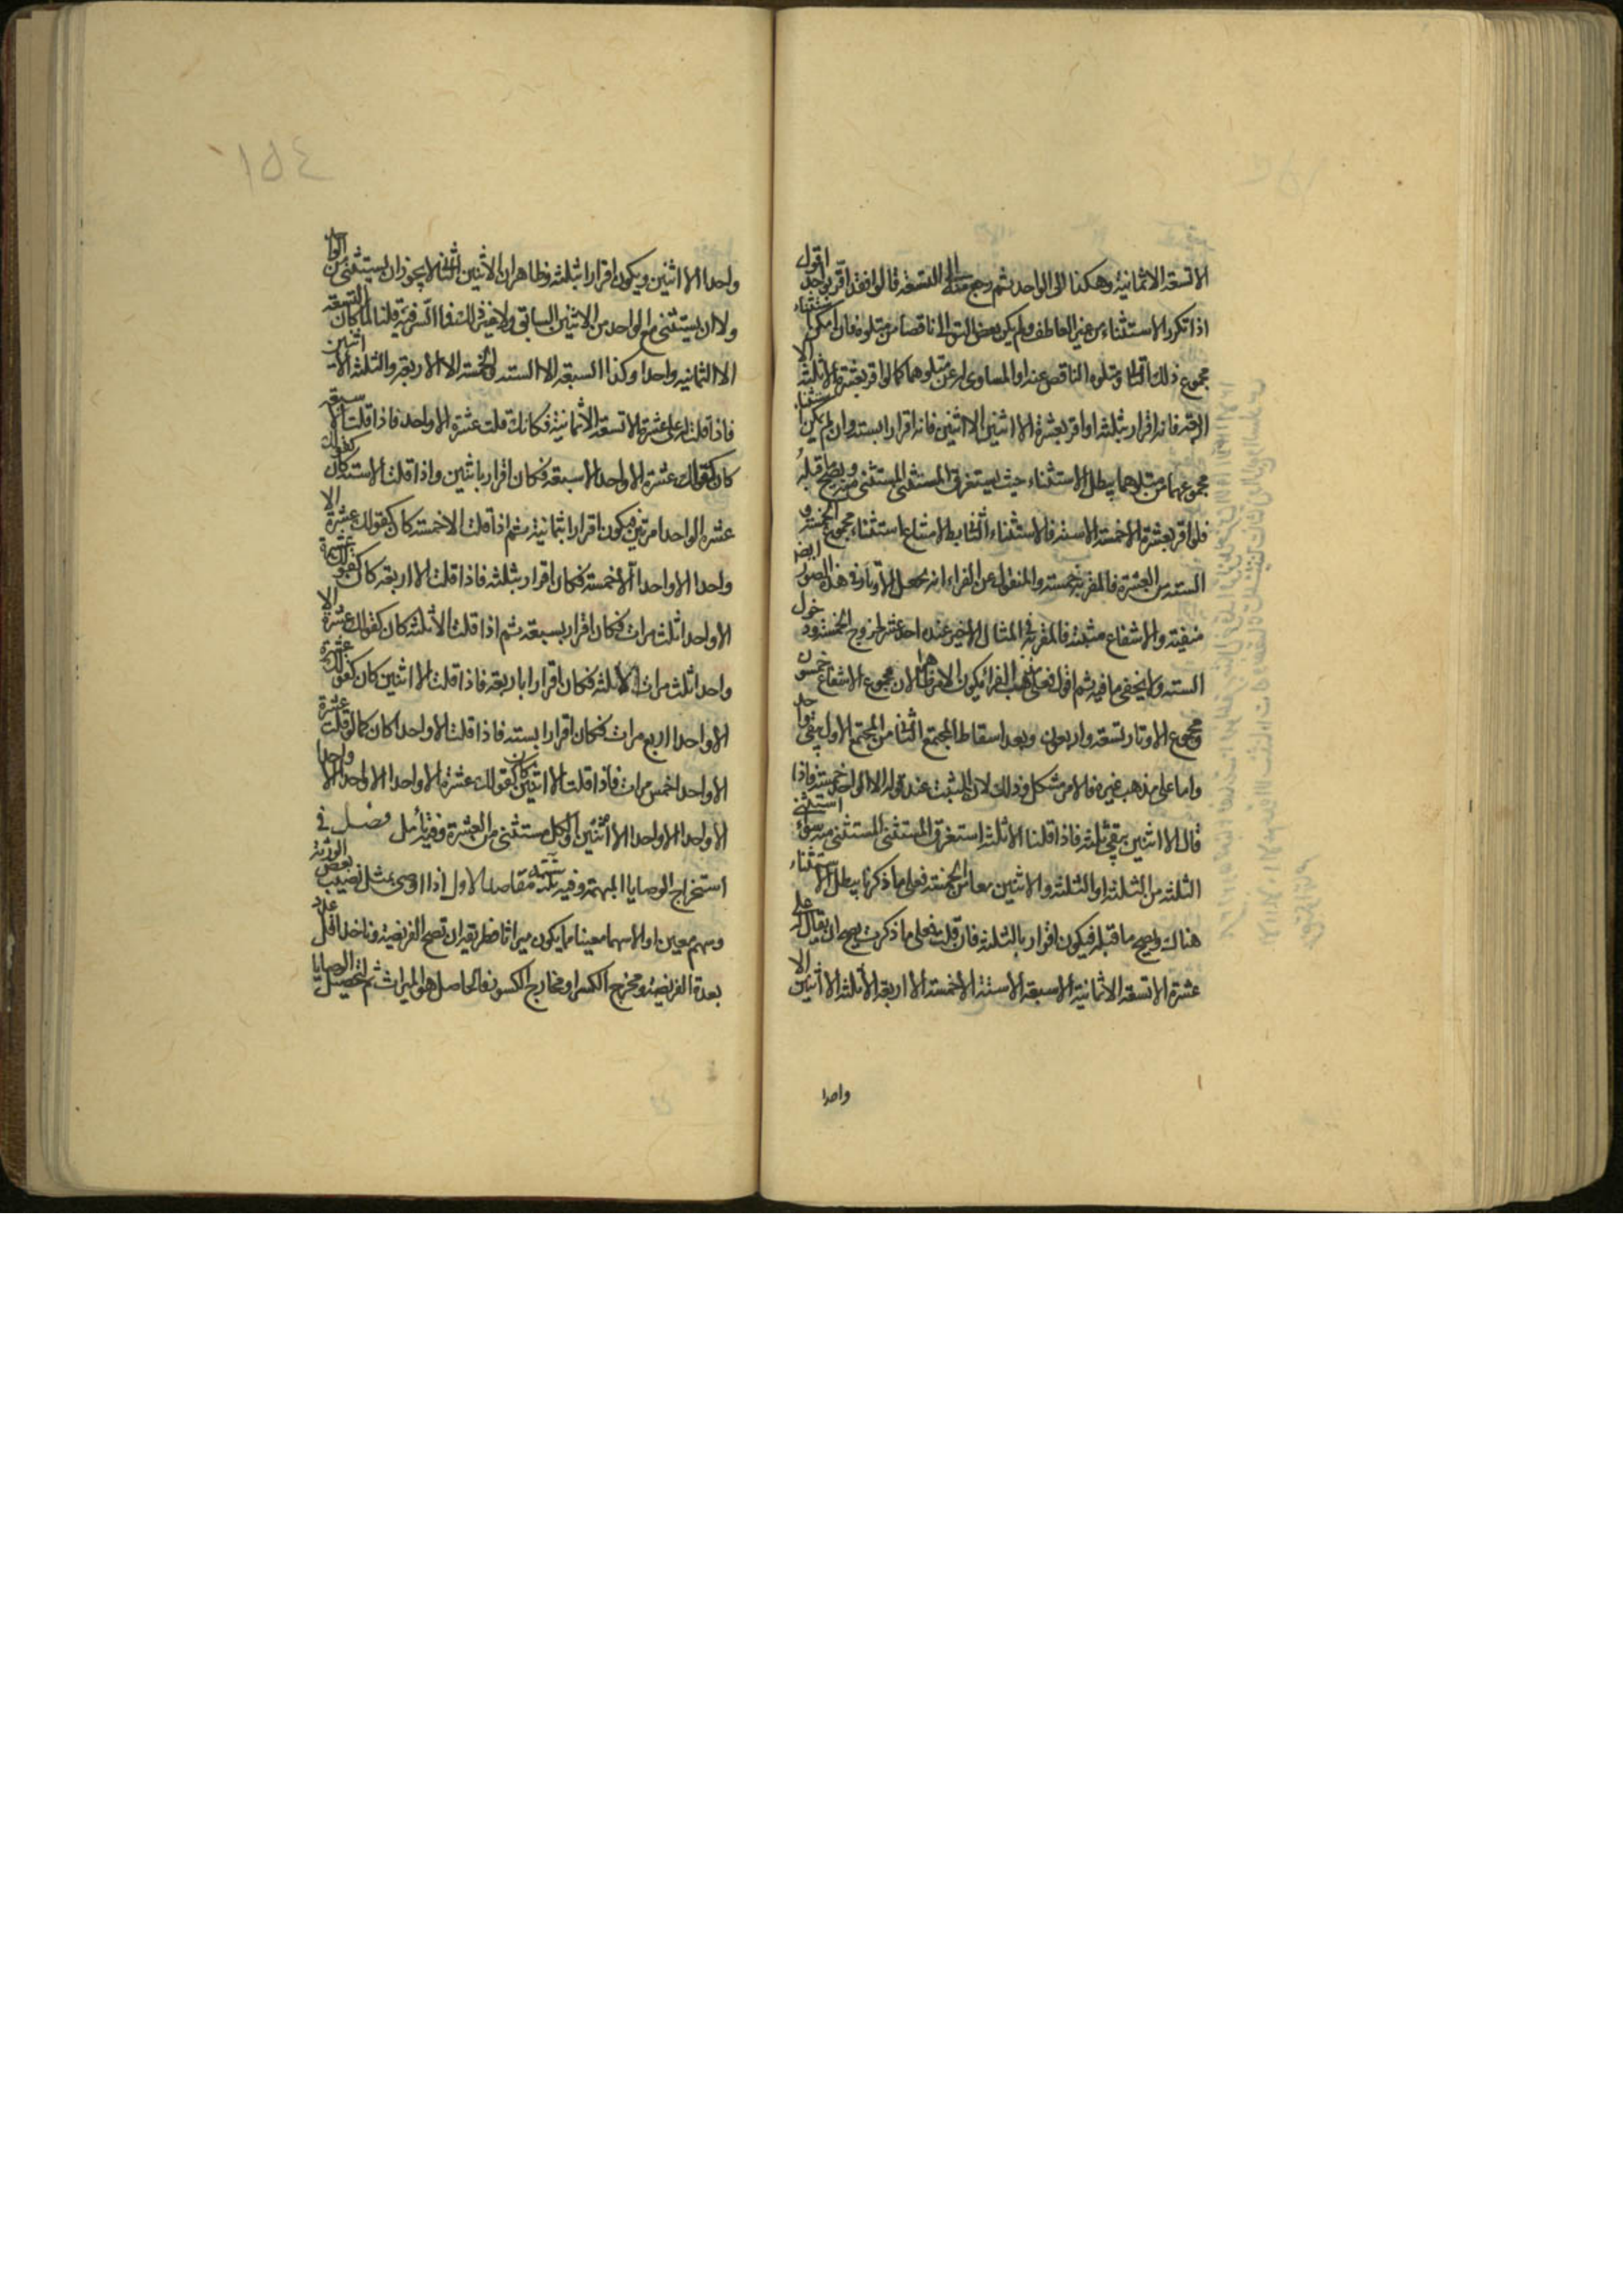 الا تسعة الا ثمانية وهكذا الى الواحد ثم رجع منه الى التسعة قالوا فقد اقر بواحد اقول
اذا تكرر الاستثناء من غير العاطف ولم يكن بعض التوالى ناقصا من متلوه فان امكن استثناء
مجموع ذلك التالى ومتلوه الناقص عنه او المساوى له عن متلوهما كما لو اقر بعشرة الا ثلثة الا
اربعة فانه اقرار بثلثة او اقر بعشرة الا اثنين الا اثنين فانه اقرار بستة وان لم يكن استثناء
مجموعهما من متلوهما يبطل الاستثناء حيث يستغرق المستثنى المستثنى منه ويصح ما قبله
فلو اقر بعشرة الا خمسة الا ستة فالاستثناء الثانى باطل لامتناع استثناء مجموع الخمسة و
الستة من العشرة فالمقر به خمسة والمنقول عن الفراء انه يجعل الاوتار فى هذه الصور ايض
منفية والاشفاع مثبتة فالمقر به فى المثال الاخير عنده احد عشر لخروج الخمسة ودخول
الستة ولا يخفى ما فيه ثم اقول فعلى مذهب الفراء يكون الامر ظاهرا لان مجموع الاشفاع خمسون
ومجموع الاوتار تسعة واربعون وبعد اسقاط المجتمع الثانى من المجتمع الاول يبقى واحد
واما على مذهب غيره فالامر مشكل وذلك لان المثبت عند قوله الا الواحد خمسة فاذا
قال الا اثنين يبقى ثلثة فاذا قلنا الا ثلثة استغرق المستثنى المستثنى منه سواء استثنى
الثلثة من الثلثة او الثلثة والاثنين معا من الخمسة فعلى ما ذكرنا يبطل الاستثناء
هناك ويصح ما قبله فيكون اقرار بالثلثة فان قلت فعلى ما ذكرت يصح ان يقال له على
عشرة الا تسعة الا ثمانية الا سبعة الا ستة الا خمسة الا اربعة الا ثلثة الا اثنين الا
واحدا
١٥٤
واحدا الا اثنين ويكون اقرارا بثلثة وظاهر ان الاثنين الثانى لا يجوز ان يستثنى من الواحد
ولا ان يستثنى مع الواحد من الاثنين السابق ولا غير ذلك فما السر فيه قلنا لما كان التسعة
الا الثمانية واحدا وكذا السبعة الا الستة والخمسة الا الاربعة والثلثة الا اثنين
فاذا قلت له على عشرة الا تسعة الا ثمانية فكانك قلت عشرة الا واحد فاذا قلت الا سبعة
كان كقولك عشرة الا واحدا الا سبعة فكان اقرار باثنين واذا قلت الا ستة كان كقولك
عشرة الا واحدا مرتين فيكون اقرارا بثمانية ثم اذا قلت الا خمسة كان كقولك عشرة الا
واحدا الا واحدا الا خمسة فكان اقرار بثلثة فاذا قلت الا اربعة كان كقولك عشرة
الا واحدا ثلث مرات فكان اقرار بسبعة ثم اذا قلت الا ثلثة كان كقولك عشرة الا
واحدا ثلث مرات الا ثلثة فكان اقرارا باربعة فاذا قلت الا اثنين كان كقولك عشرة
الا واحدا اربع مرات فكان اقرارا بستة فاذا قلت الا واحدا كان كما لو قلت عشرة
الا واحدا خمس مرات فاذا قلت الا اثنين كان كقولك عشرة الا واحدا الا واحدا الا واحدا
الا واحدا الا واحدا الا اثنين والكل مستثنى من العشرة وفيه تأمل فصل فى
استخراج الوصايا المبهمة وفيه ثلثة مقاصد الاول اذا اوصى بمثل نصيب بعض الورثة
وسهم معين او الا سهما معينا مما يكون ميراثا فطريقه ان تصح الفريضة وناخذ اقل عدد
بعدة الفريضة ومخرج الكسر او مخارج الكسور فالحاصل هو الميراث ثم لتحصيل الوصايا